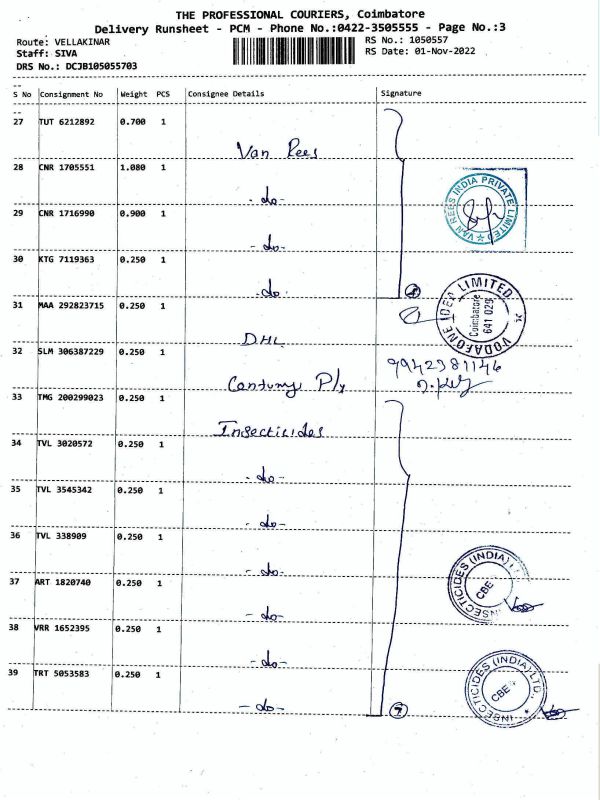 THE PROFESSIONAL COURIERS, Coimbatore
Delivery Runsheet - PCM - Phone No.:0422-3505555 - Page No.:3
Route: VELLAKINAR
RS No.: 1050557
Staff: SIVA
RS Date: 01-Nov-2022
DRS No.: DCJB105055703
S No Consignment No Weight PCS Consignee Details Signature
27 TUT 6212892 0.700 1
Van Rees
28 CNR 1705551 1.080 1
-do-
29 CNR 1716990 0.900 1
-do-
30 KTG 7119363 0.250 1
-do-
4
31 MAA 292823715 0.250 1
DHL
32 SLM 306387229 0.250 1
Century Ply
33 TMG 200299023 0.250 1
Insecticides
34 TVL 3020572 0.250 1
-do-
35 TVL 3545342 0.250 1
-do-
36 TVL 338909 0.250 1
-do-
37 ART 1820740 0.250 1
-do-
38 VRR 1652395 0.250 1
-do-
39 TRT 5053583 0.250 1
-do-
7
VAN REES INDIA PRIVATE LIMITED
VODAFONE IDEA LIMITED
Coimbatore
641 029
9942381146
INSECTICIDES (INDIA) LTD.
CBE
INSECTICIDES (INDIA) LTD.
CBE